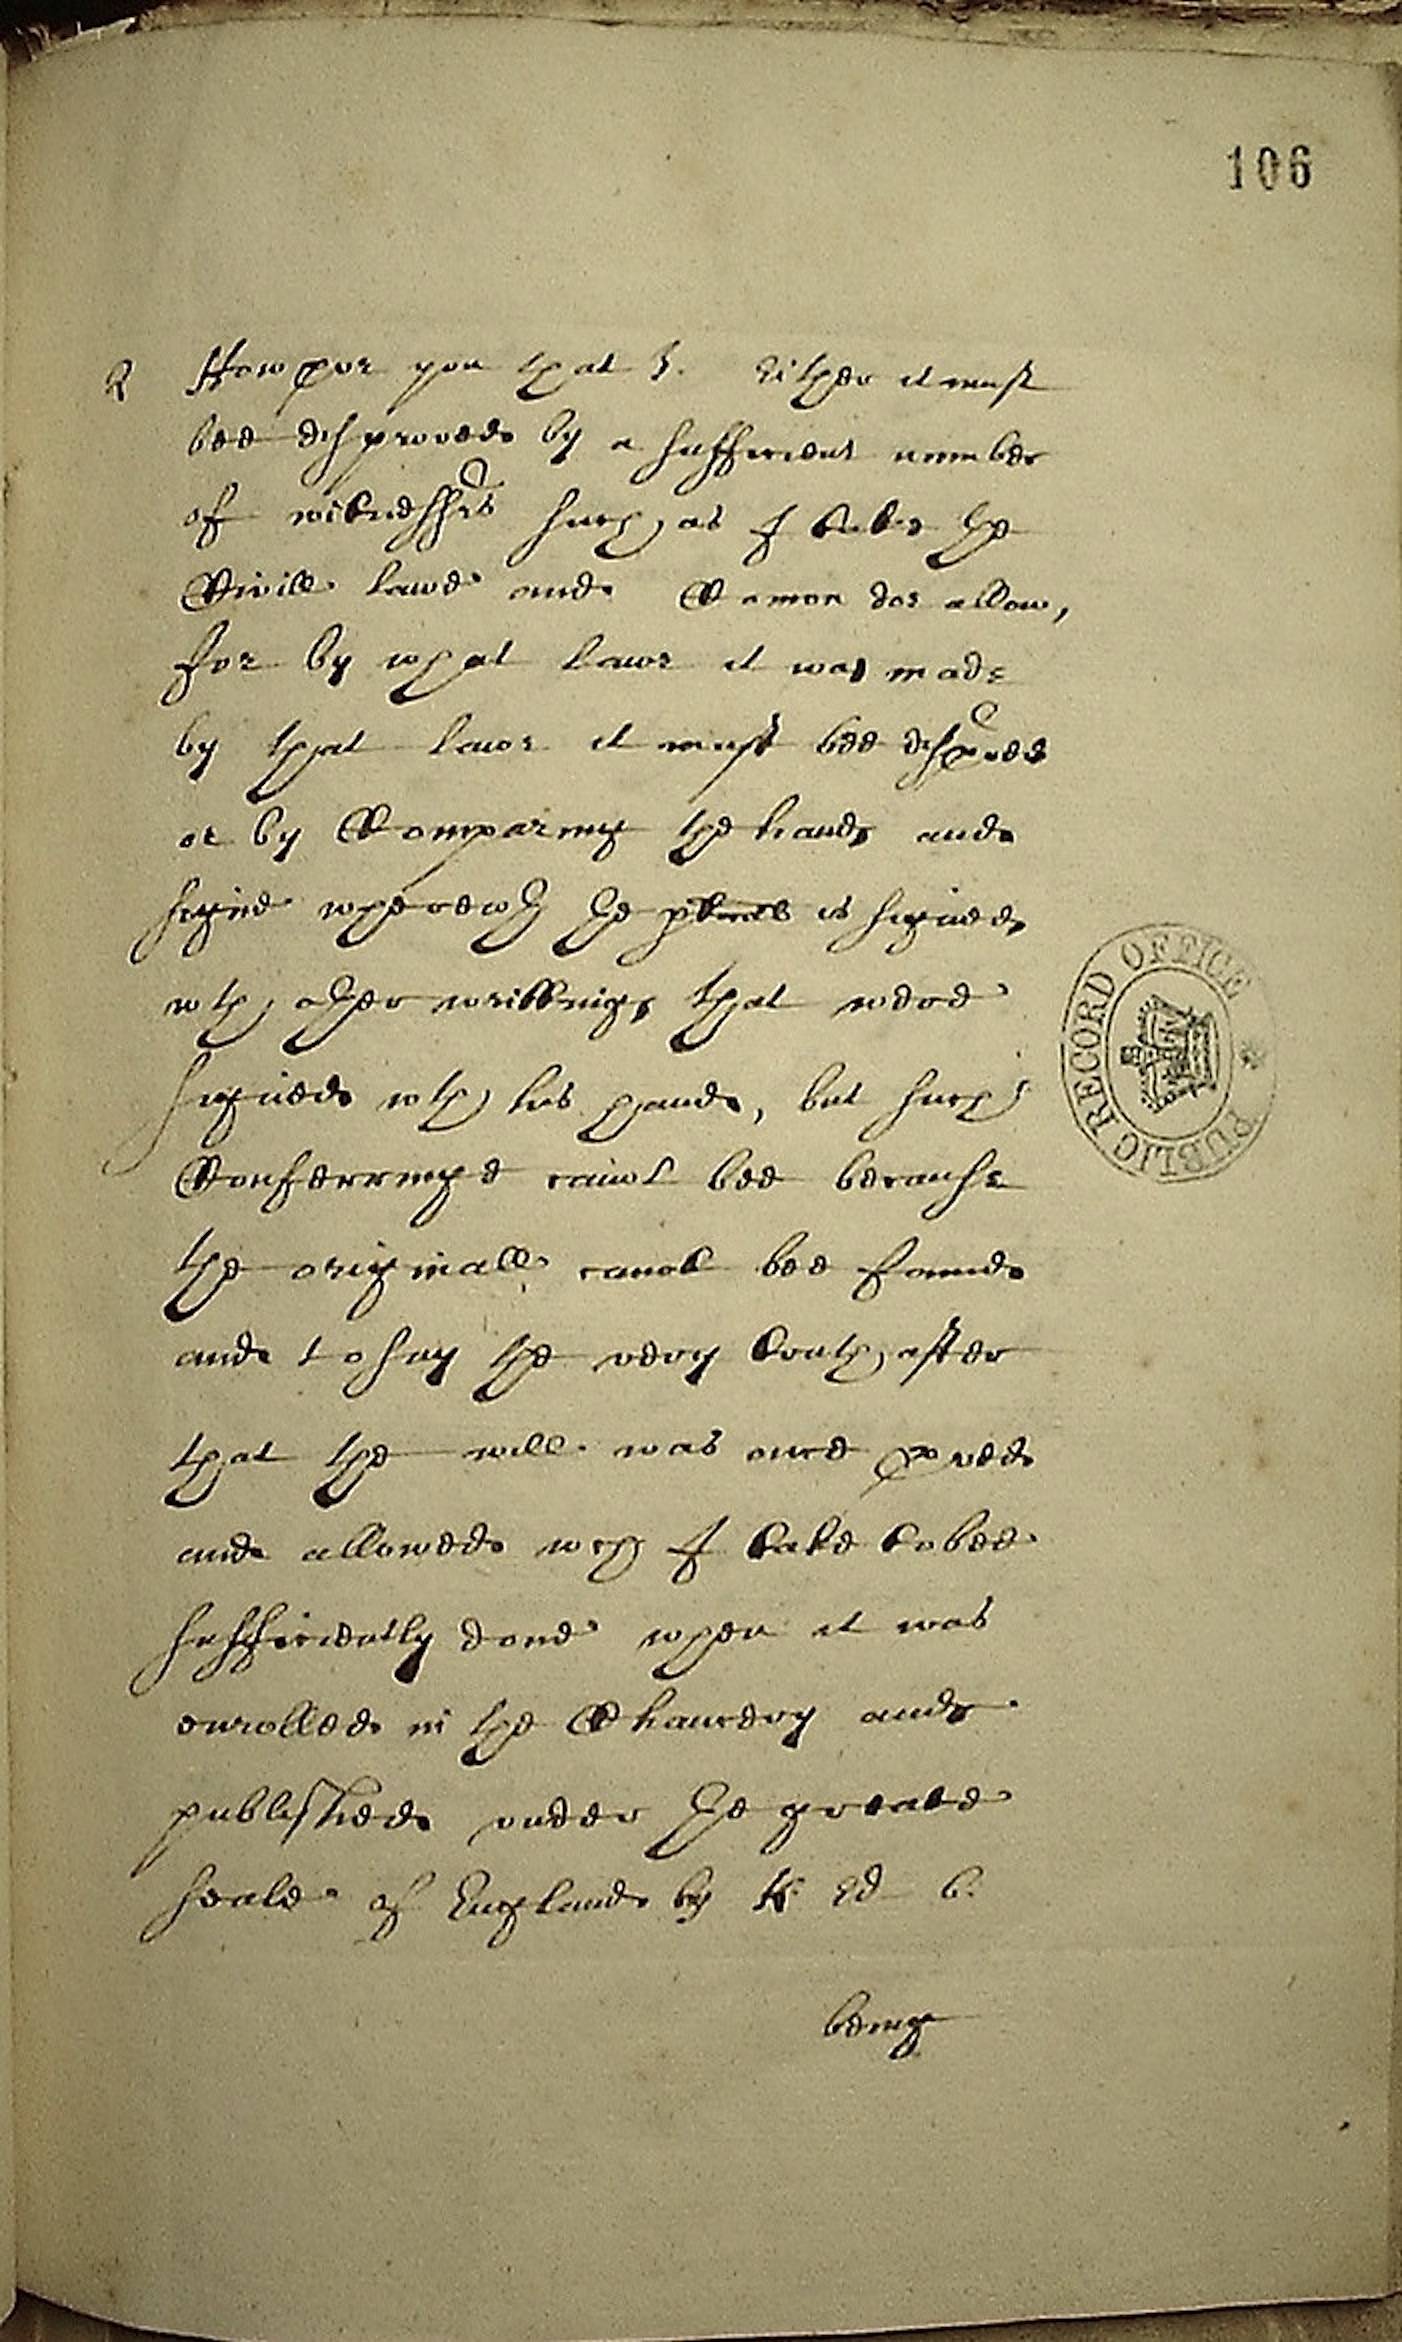 106
R How prove you that ?. Either it must
bee disproued by a sufficient number
of witnesses such as I take the
Civill lawe and Comon doe allow,
for by what lawe it was made
by that lawe it must bee disproued
or by Comparing the hands and
signe wherewth the is signed,
wth other writtings that were
signed wth his hand, but such
Conferringe canot bee because
the originall canot bee found
and to say the very truth after
that the will was once proued
and allowed wch I take to bee
sufficiently done when it was
enrolled in the Chancery and
published under the greate
seale of England by K Ed 6.
being
PUBLIC RECORD OFFICE